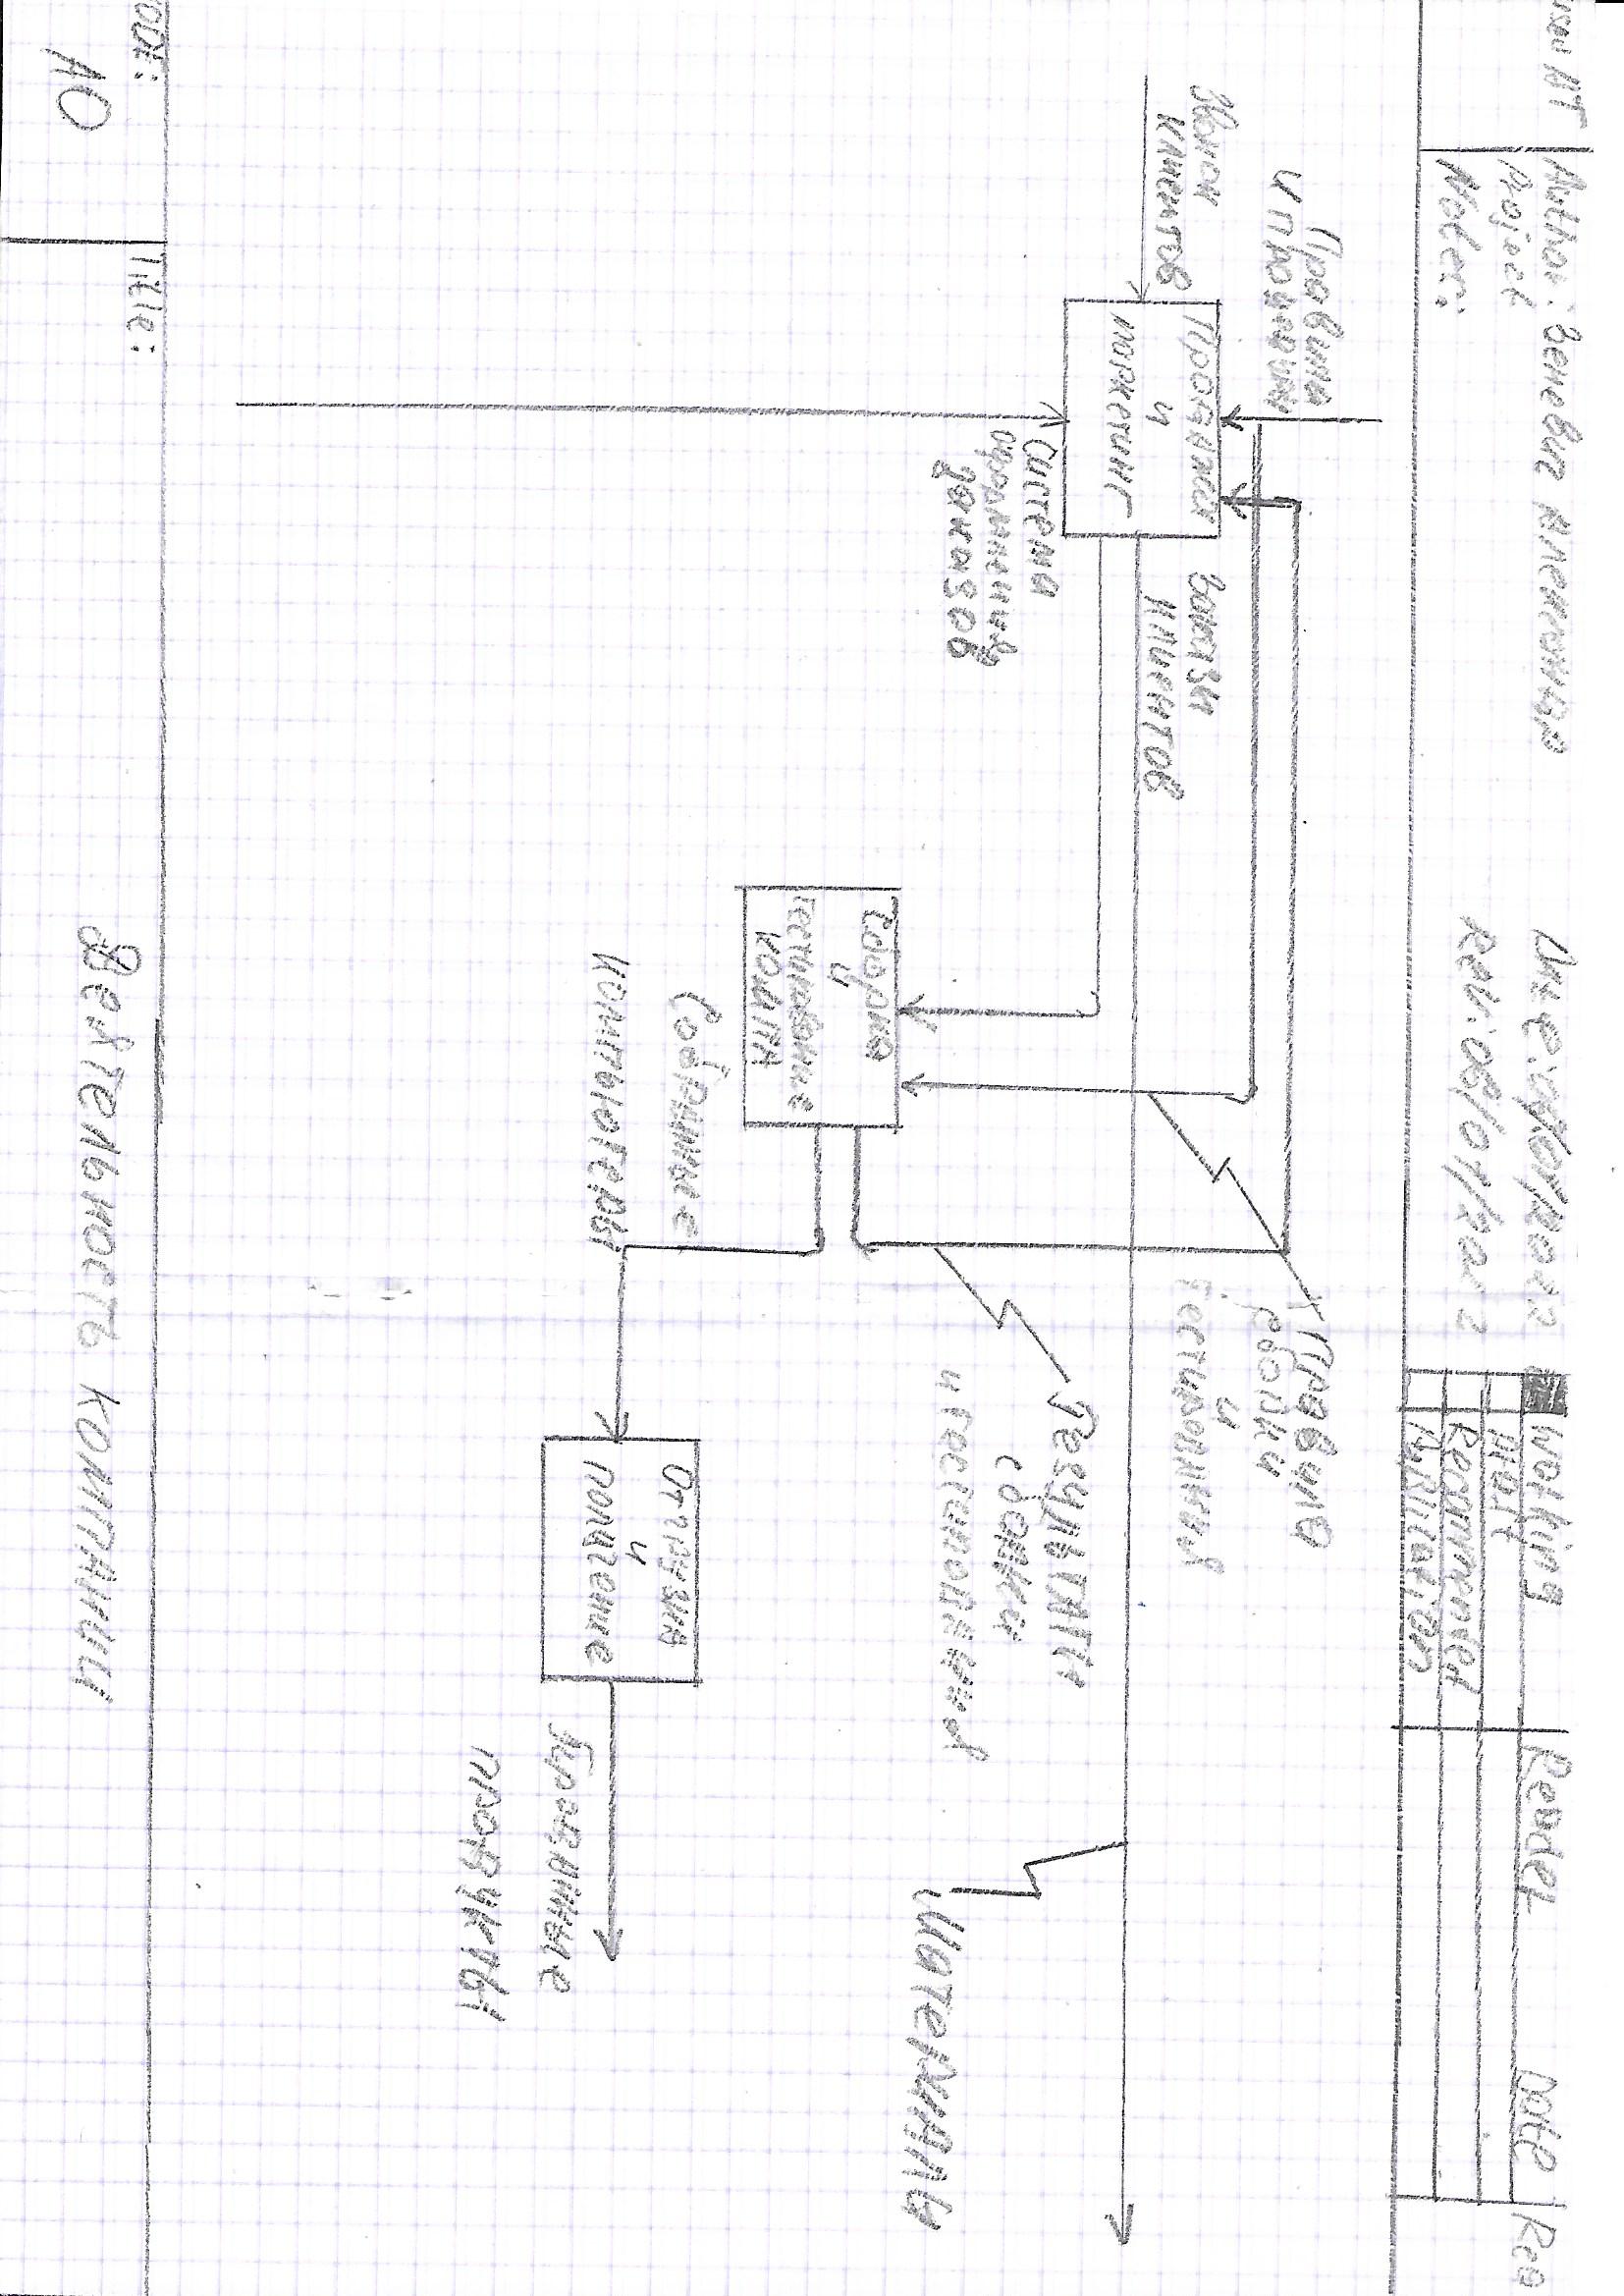 used AT
Author: Зеневич Александр
Project
Notes:
Date:
Rev: 06/01/2022
Working
Draft
Recommented
Publication
Reader Date
Rea
Правила
и процедуры
Звонок
клиентов
Продажи
и
маркетинг
Заказы
клиентов
Система
оформления
заказов
Правила
сборки
и
тестирования
Результаты
сборки
и тестирования
Материалы
Сборка
и
тестирование
компа
Собранные
компьютеры
Отгрузка
и
получение
Проданные
продукты
ODE:
A0
Title:
Деятельность компании